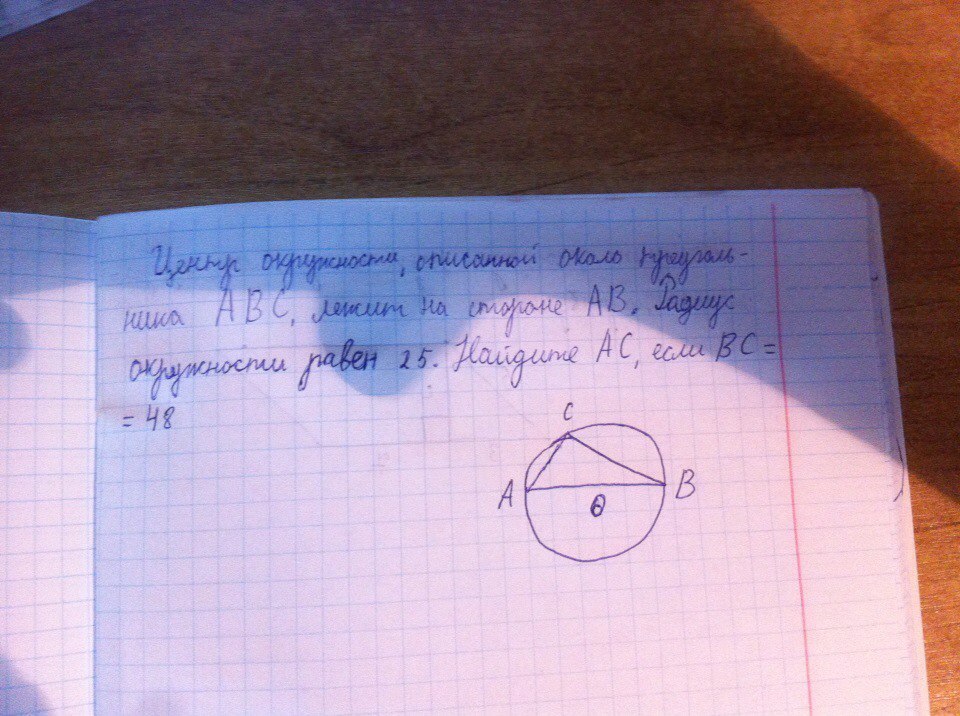 Центр окружности, описанной около треуголь-
ника ABC, лежит на стороне AB. Радиус
окружности равен 25. Найдите AC, если BC =
= 48
C
A
B
O